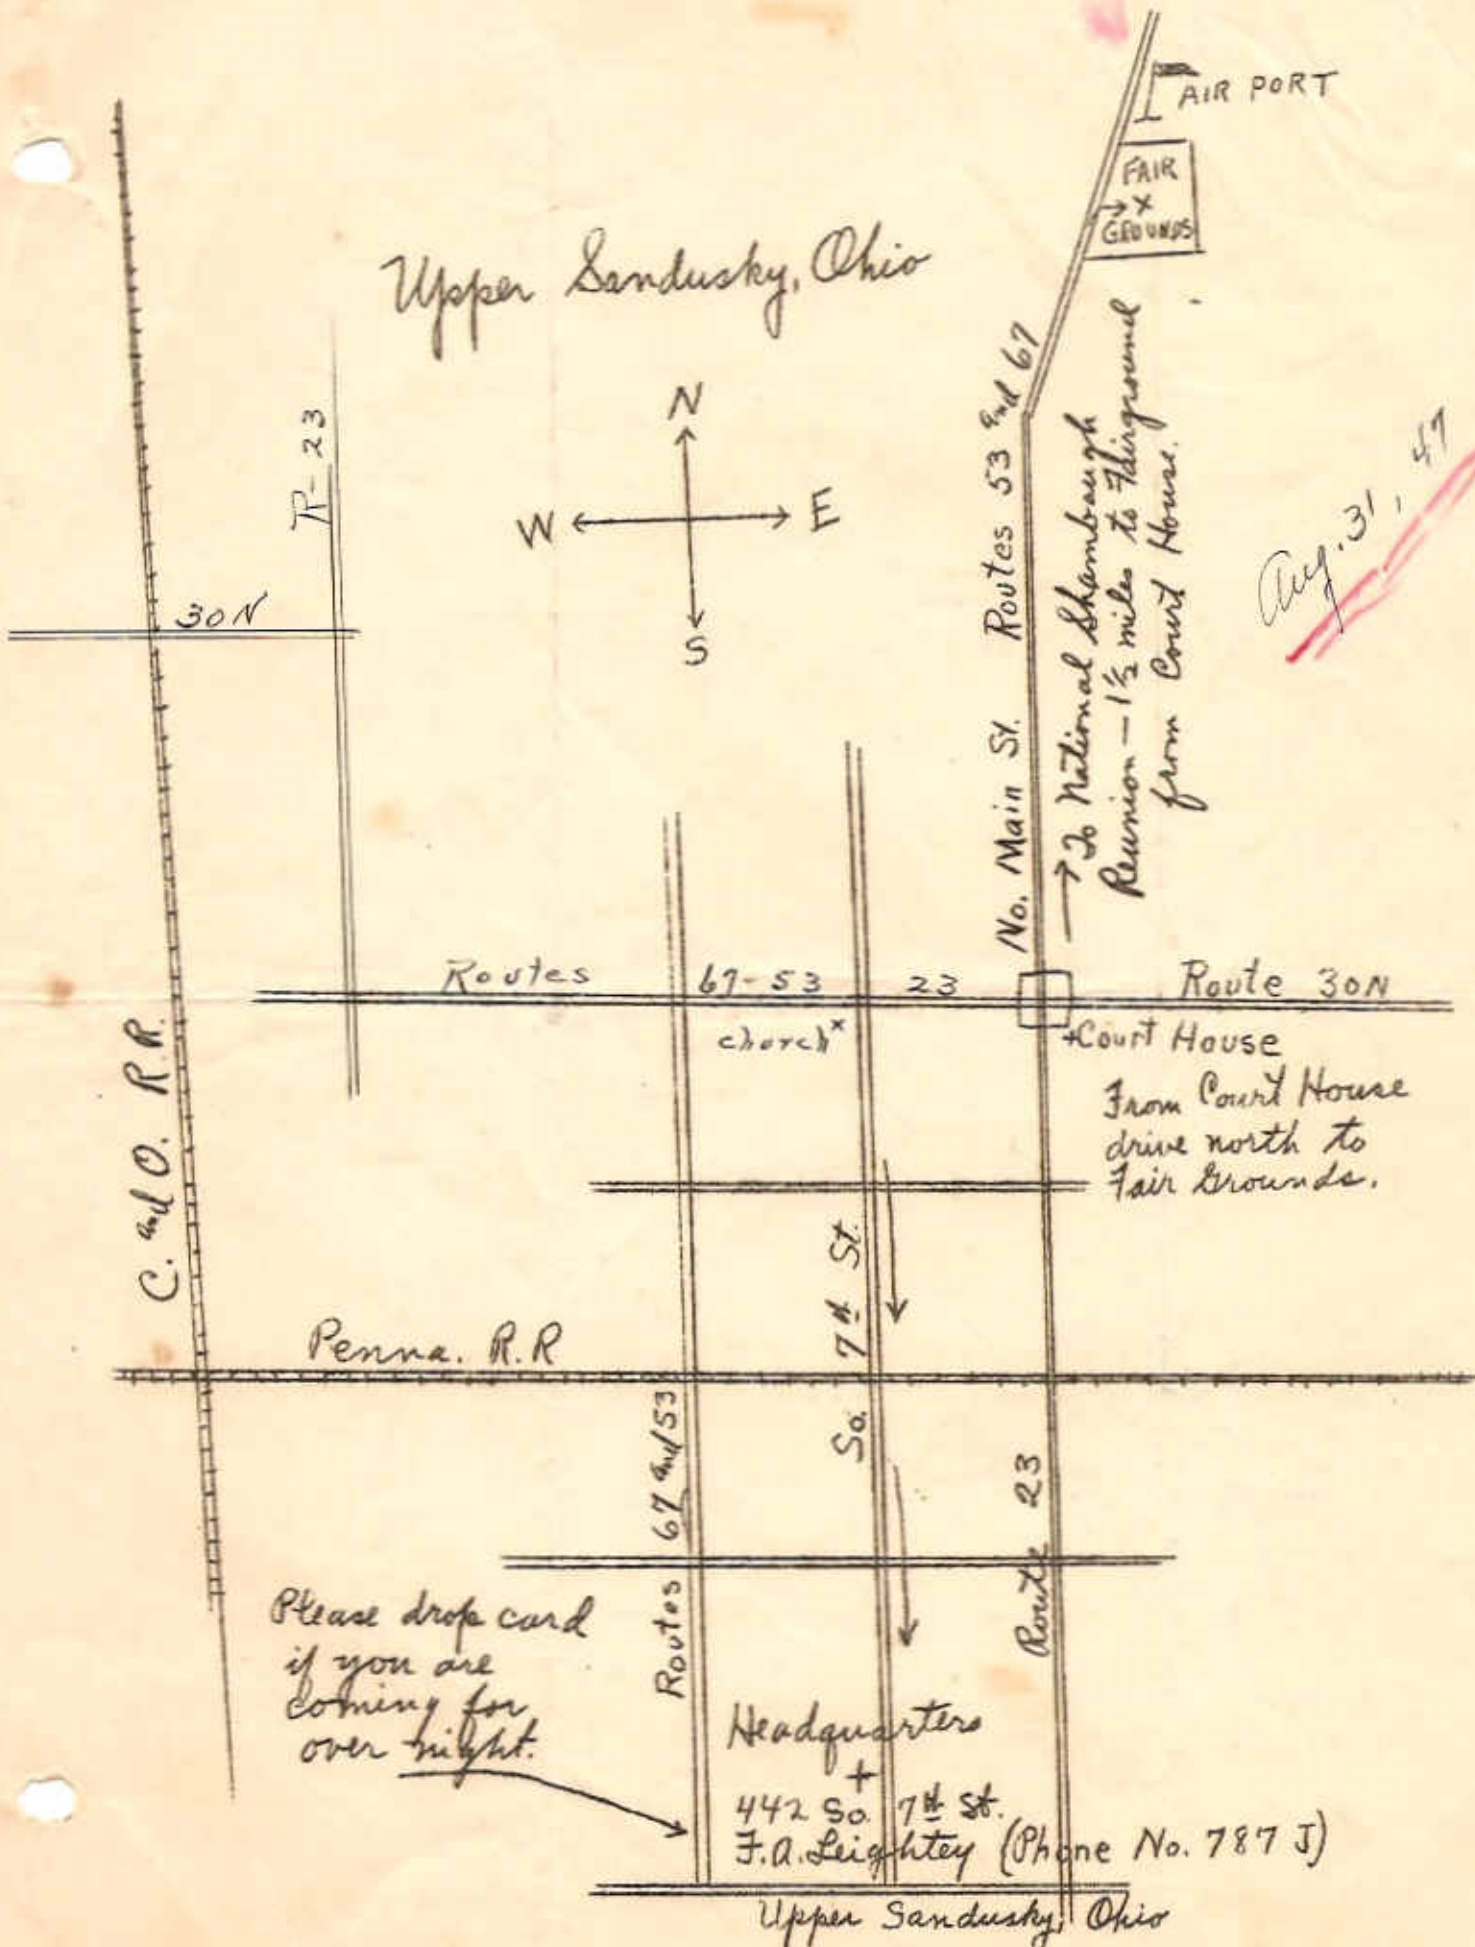 AIR PORT
FAIR
→ X
GROUNDS
Upper Sandusky, Ohio
N
W E
S
R-23
30N
No. Main St. Routes 53 and 67
→ To National Shambaugh
Reunion — 1½ miles to Fairground
from Court House.
Aug. 31, 47
Routes 67-53 23 Route 30N
church x
+Court House
From Court House
drive north to
Fair Grounds.
C. and O. R.R.
So. 7th St.
Penna. R.R
Routes 67 and 53
Route 23
Please drop card
if you are
coming for
over night.
Headquarters
+
442 So. 7th St.
F.A. Leightey (Phone No. 787 J)
Upper Sandusky, Ohio